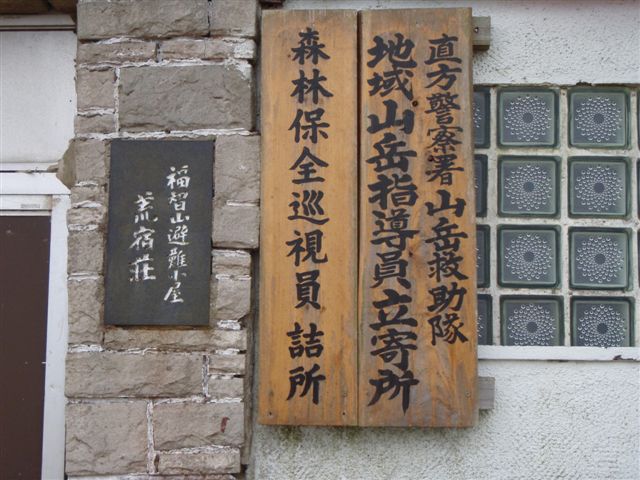 直方警察署山岳救助隊
地域山岳指導員立寄所
森林保全巡視員詰所
福智山避難小屋
荒宿荘